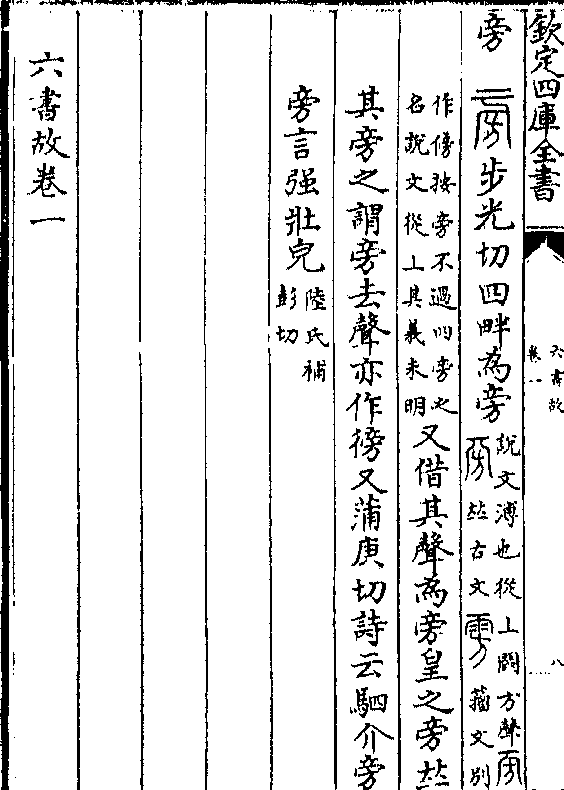 欽定四庫全書
六書故
卷一
八
旁步光切四畔為旁說文溥也從上闕方聲
𠀤古文籀文別
作傍按旁不過四旁之
名說文從上其義未明
又借其聲為旁皇之旁𠀤
其旁之謂旁去聲亦作徬又蒲庚切詩云駟介旁
旁言强壯皃陸氏補
彭切
六書故卷一